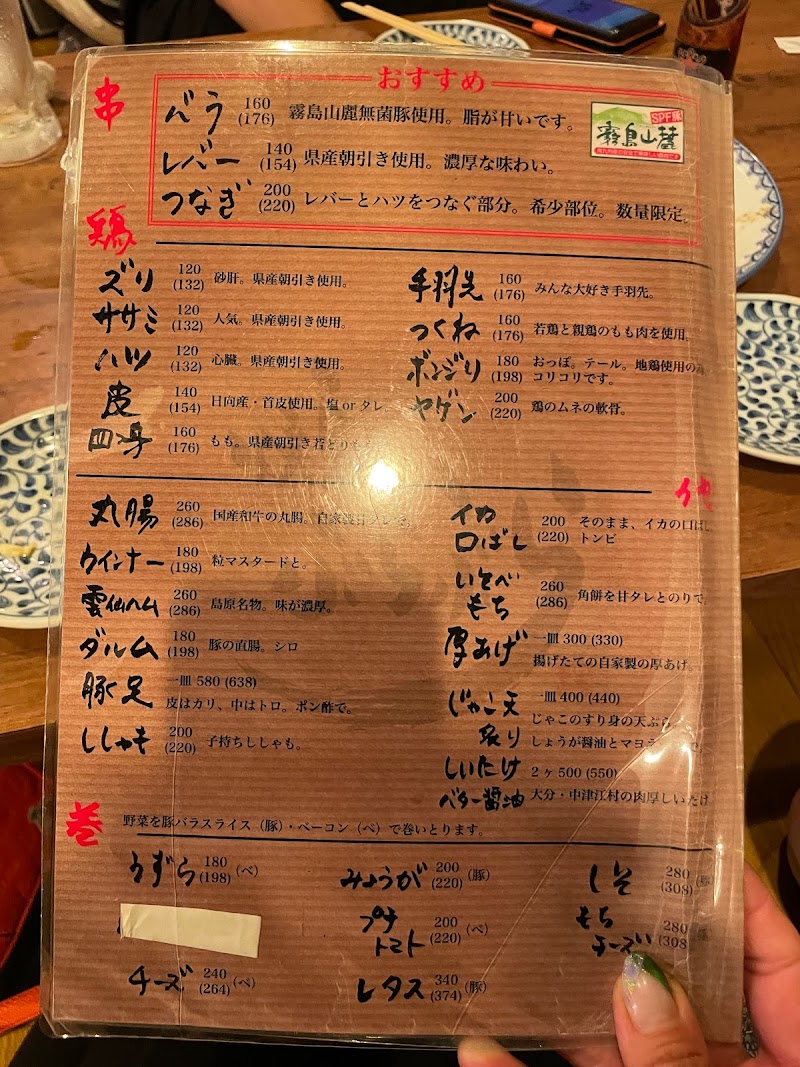 串
おすすめ
バラ 160 (176) 霧島山麓無菌豚使用。脂が甘いです。
SPF豚
霧島山麓
レバー 140 (154) 県産朝引き使用。濃厚な味わい。
つなぎ 200 (220) レバーとハツをつなぐ部分。希少部位。数量限定。
鶏
ズリ 120 (132) 砂肝。県産朝引き使用。
ササミ 120 (132) 人気。県産朝引き使用。
ハツ 120 (132) 心臓。県産朝引き使用。
皮 140 (154) 日向産・首皮使用。塩 or タレ
四身 160 (176) もも。県産朝引き若どりもも
手羽先 160 (176) みんな大好き手羽先。
つくね 160 (176) 若鶏と親鶏のもも肉を使用。
ボンジリ 180 (198) おっぽ。テール。地鶏使用の為
コリコリです。
ヤゲン 200 (220) 鶏のムネの軟骨。
他
丸腸 260 (286) 国産和牛の丸腸。自家製
ウインナー 180 (198) 粒マスタードと。
雲仙ハム 260 (286) 島原名物。味が濃厚。
ダルム 180 (198) 豚の直腸。シロ
豚足 一皿 580 (638)
皮はカリ、中はトロ。ポン酢で。
ししゃも 200 (220) 子持ちししゃも。
イカ口ばし 200 (220) そのまま、イカの口ばし
トンビ
いそべもち 260 (286) 角餅を甘タレとのりで
厚あげ 一皿 300 (330)
揚げたての自家製の厚あげ。
じゃこ天炙り 一皿 400 (440)
じゃこのすり身の天ぷら
しょうが醤油とマヨ
しいたけバター醤油 2ヶ 500 (550)
大分・中津江村の肉厚しいたけ
巻
野菜を豚バラスライス（豚）・ベーコン（べ）で巻いとります。
うずら 180 (198) (べ)
みょうが 200 (220) (豚)
しそ 280 (308)
プチトマト 200 (220) (べ)
もちチーズ 280 (308
チーズ 240 (264) (べ)
レタス 340 (374) (豚)